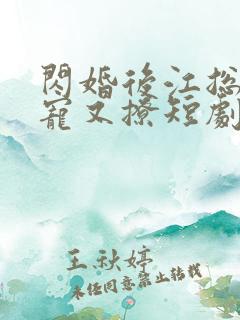 閃婚後江总
寵又撩短劇
王秋婷
未经同意禁止转载